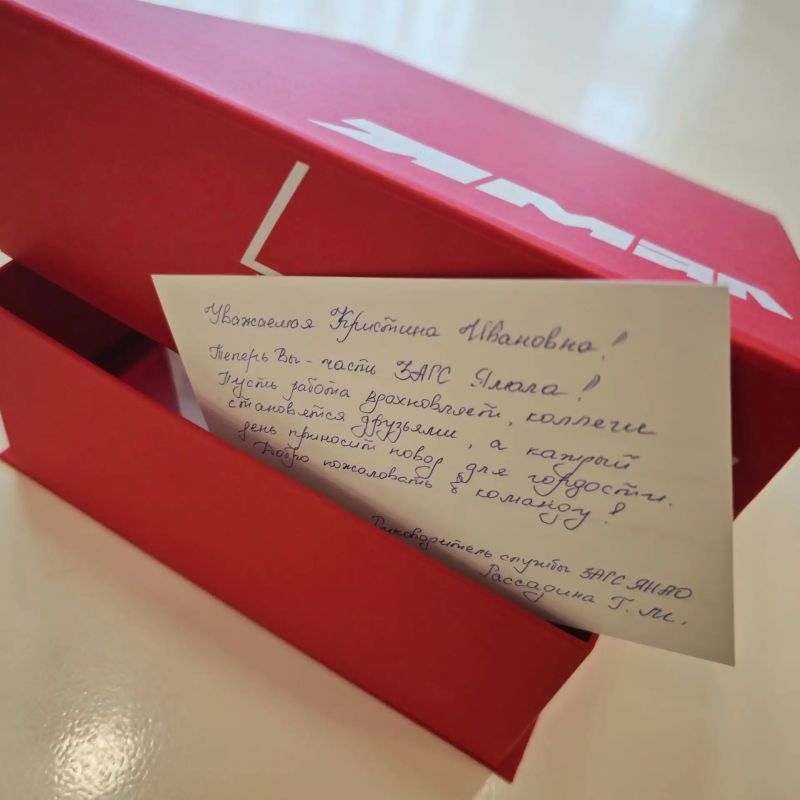 ЯМАЛ
Уважаемая Кристина Ивановна!
Теперь Вы - часть ЗАГС Ямала!
Пусть работа вдохновляет, коллеги
становятся друзьями, а каждый
день приносит повод для гордости.
Добро пожаловать в команду!
Руководитель службы ЗАГС ЯНАО
Рассадина Г.М.